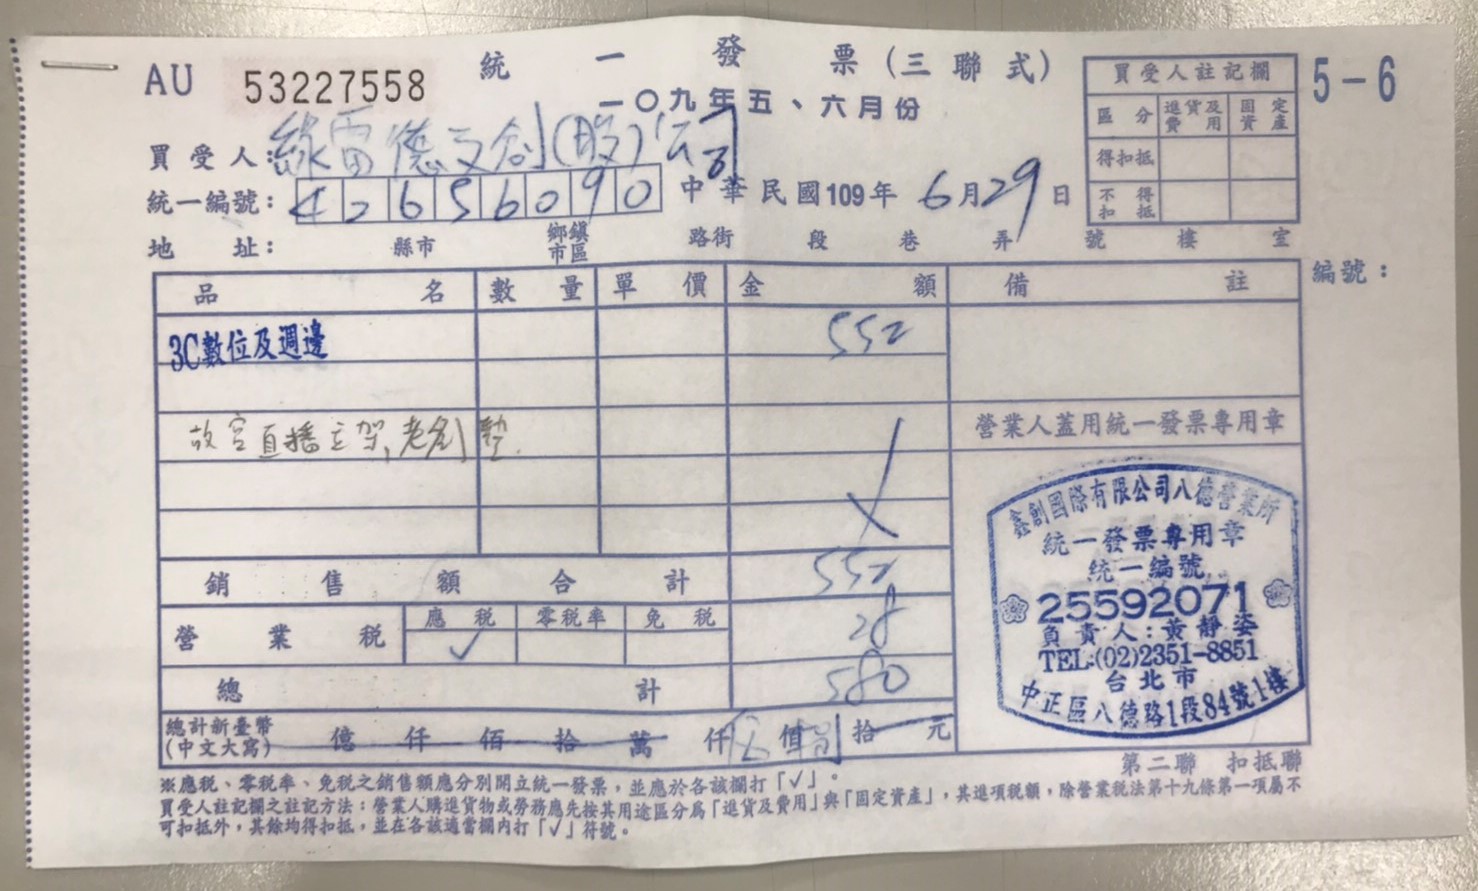 AU 53227558 統一發票(三聯式)
5-6
一〇九年五、六月份
買受人註記欄
區分 進貨及費用 固定資產
得扣抵
不得扣抵
買受人:綠雷德文創(股)公司
統一編號: 42656090 中華民國109年6月29日
地址: 縣市 鄉鎮市區 路街 段 巷 弄 號 樓 室
編號:
品名 數量 單價 金額 備註
3C數位及週邊 552
故宮直播主架,老創墊. 營業人蓋用統一發票專用章
銷售額合計 552
營業稅 應稅 √ 零稅率 免稅 28
總計 580
總計新臺幣(中文大寫) 億 仟 佰 拾 萬 仟 伍 佰 捌 拾 元
鑫創國際有限公司八德營業所
統一發票專用章
統一編號
25592071
負責人:黃靜姿
TEL:(02)2351-8851
台北市
中正區八德路1段84號1樓
第二聯 扣抵聯
※應稅、零稅率、免稅之銷售額應分別開立統一發票,並應於各該欄打「√」。
買受人註記欄之註記方法:營業人購進貨物或勞務應先按其用途區分為「進貨及費用」與「固定資產」,其進項稅額,除營業稅法第十九條第一項屬不
可扣抵外,其餘均得扣抵,並在各該適當欄內打「√」符號。